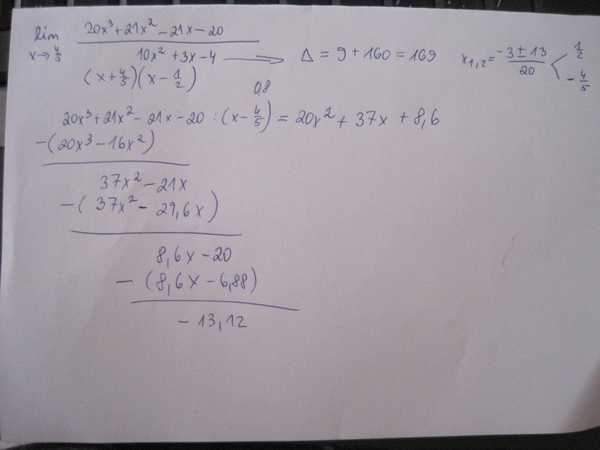 lim x→4/5 (20x³+21x²-21x-20)/(10x²+3x-4) → Δ = 9+160=169 x₁,₂ = (-3±13)/20 < 1/2, -4/5
(x+4/5)(x-1/2)
0,8
20x³+21x²-21x-20 : (x-4/5) = 20x²+37x+8,6
-(20x³-16x²)
37x²-21x
-(37x²-29,6x)
8,6x-20
-(8,6x-6,88)
-13,12